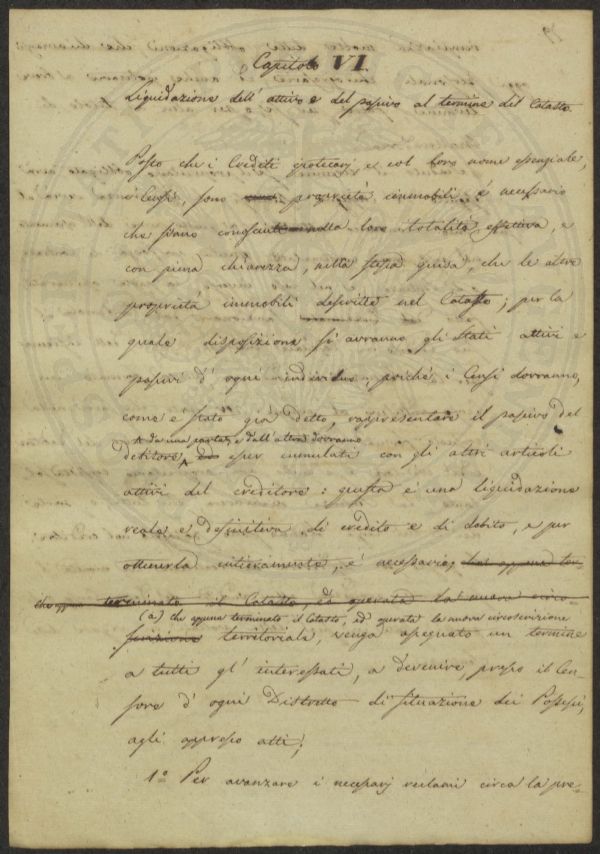 Capitolo VI.
Liquidazione dell' attivo e del passivo al termine del Catasto.
Posto che i Crediti ipotecarj e col loro nome speziale,
i Censi, sono proprietà immobili, è necessario
che siano conosciute nella loro totalità effettiva, e
con piena chiarezza, nella stessa guisa, che le altre
proprietà immobili descritte nel Catasto; per la
quale disposizione si avranno gli Stati attivi e
passivi d' ogni individuo, poichè i Censi dovranno,
come è stato già detto, rappresentare il passivo del
A da una parte, e dall' altra dovranno
debitore, A esser cumulati con gli altri articoli
attivi del creditore: questa è una liquidazione
reale e definitiva di credito e di debito, e per
ottenerla intieramente, è necessario, che appena ter-
che appena terminato il Catasto, ed operata la nuova circo-
(a) che appena terminato il Catasto, ed operata la nuova circoscrizione
scrizione territoriale, venga assegnato un termine
a tutti gl' interessati, a devenire presso il Cen-
sore d' ogni Distretto di situazione dei Possessi,
agli appresso atti;
1º Per avanzare i necessarj reclami circa la pre-